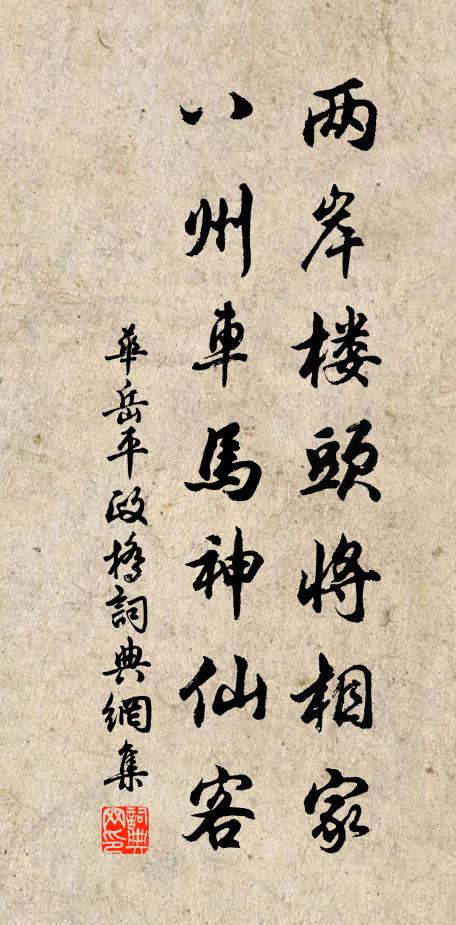 两岸楼頭将相家
八州車馬神仙客
華岳平政橋詞典網集
詞典网印